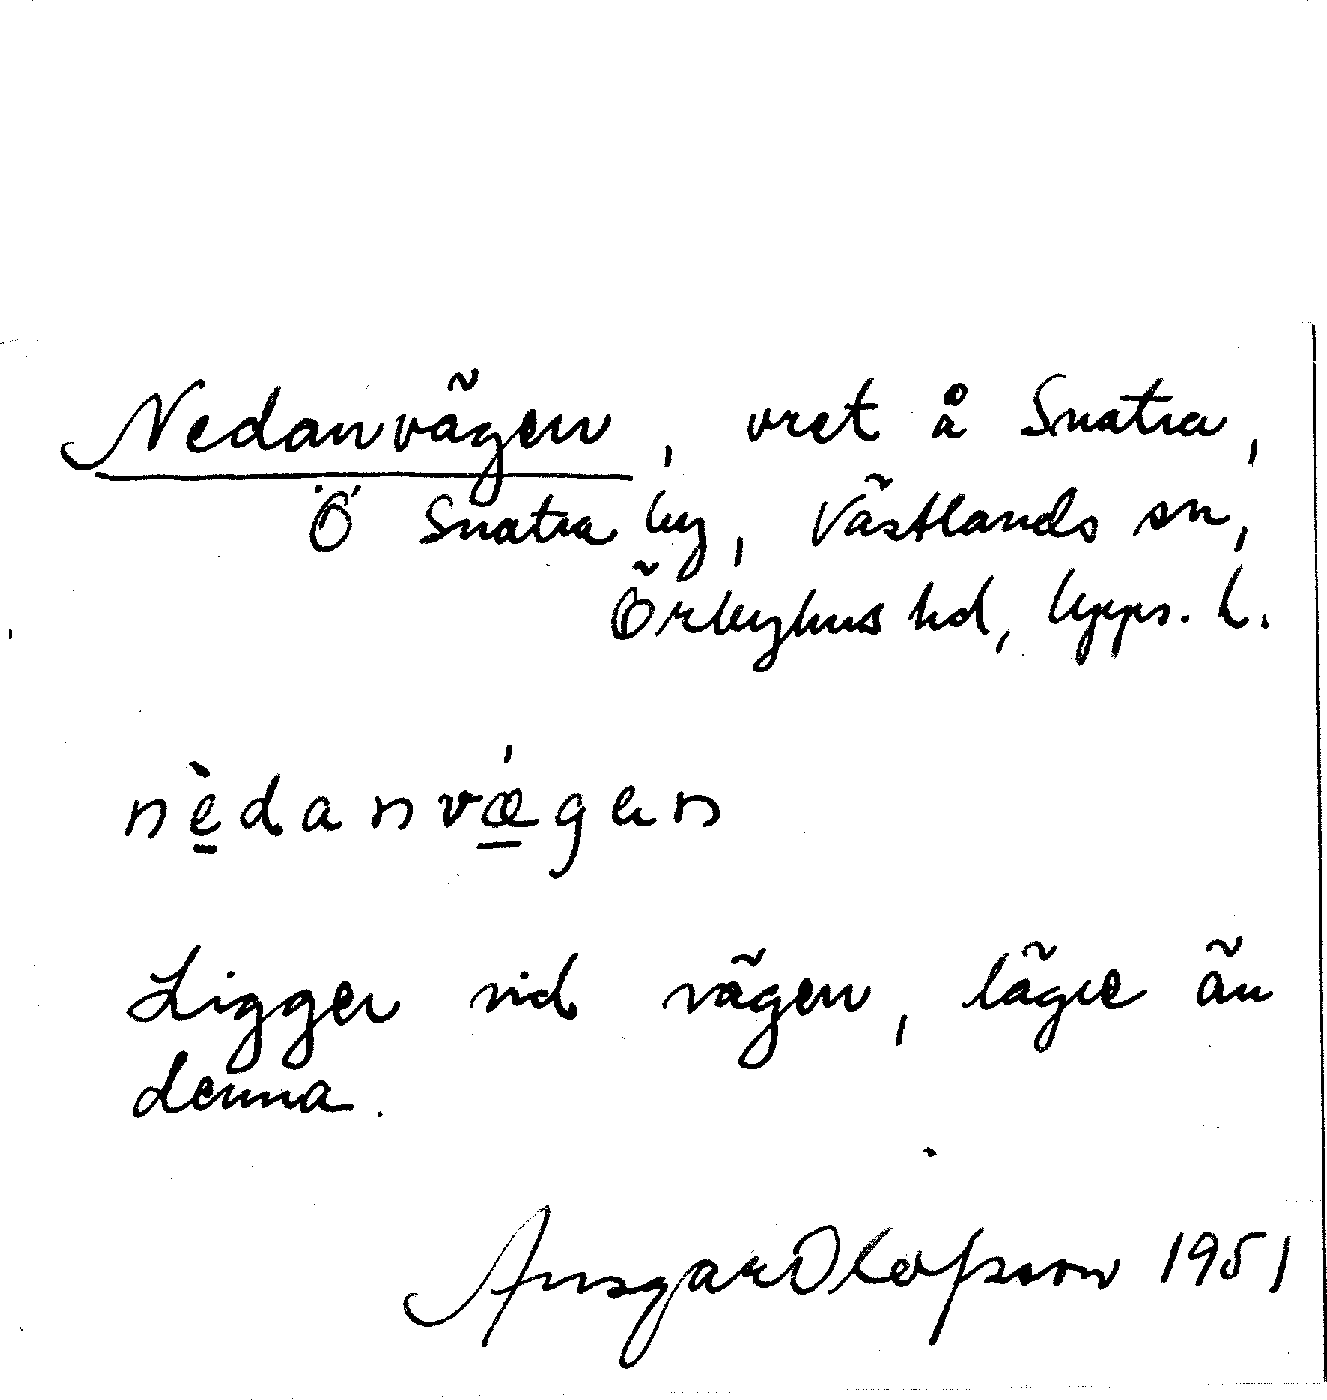 Nedanvägen, vret å Snatra,
Ö Snatra by, Västlands sn,
Örbyhus hd, Upps. l.
nèdanvǽgen
Ligger vid vägen, lägre än
denna.
Ansgar Olofsson 1951